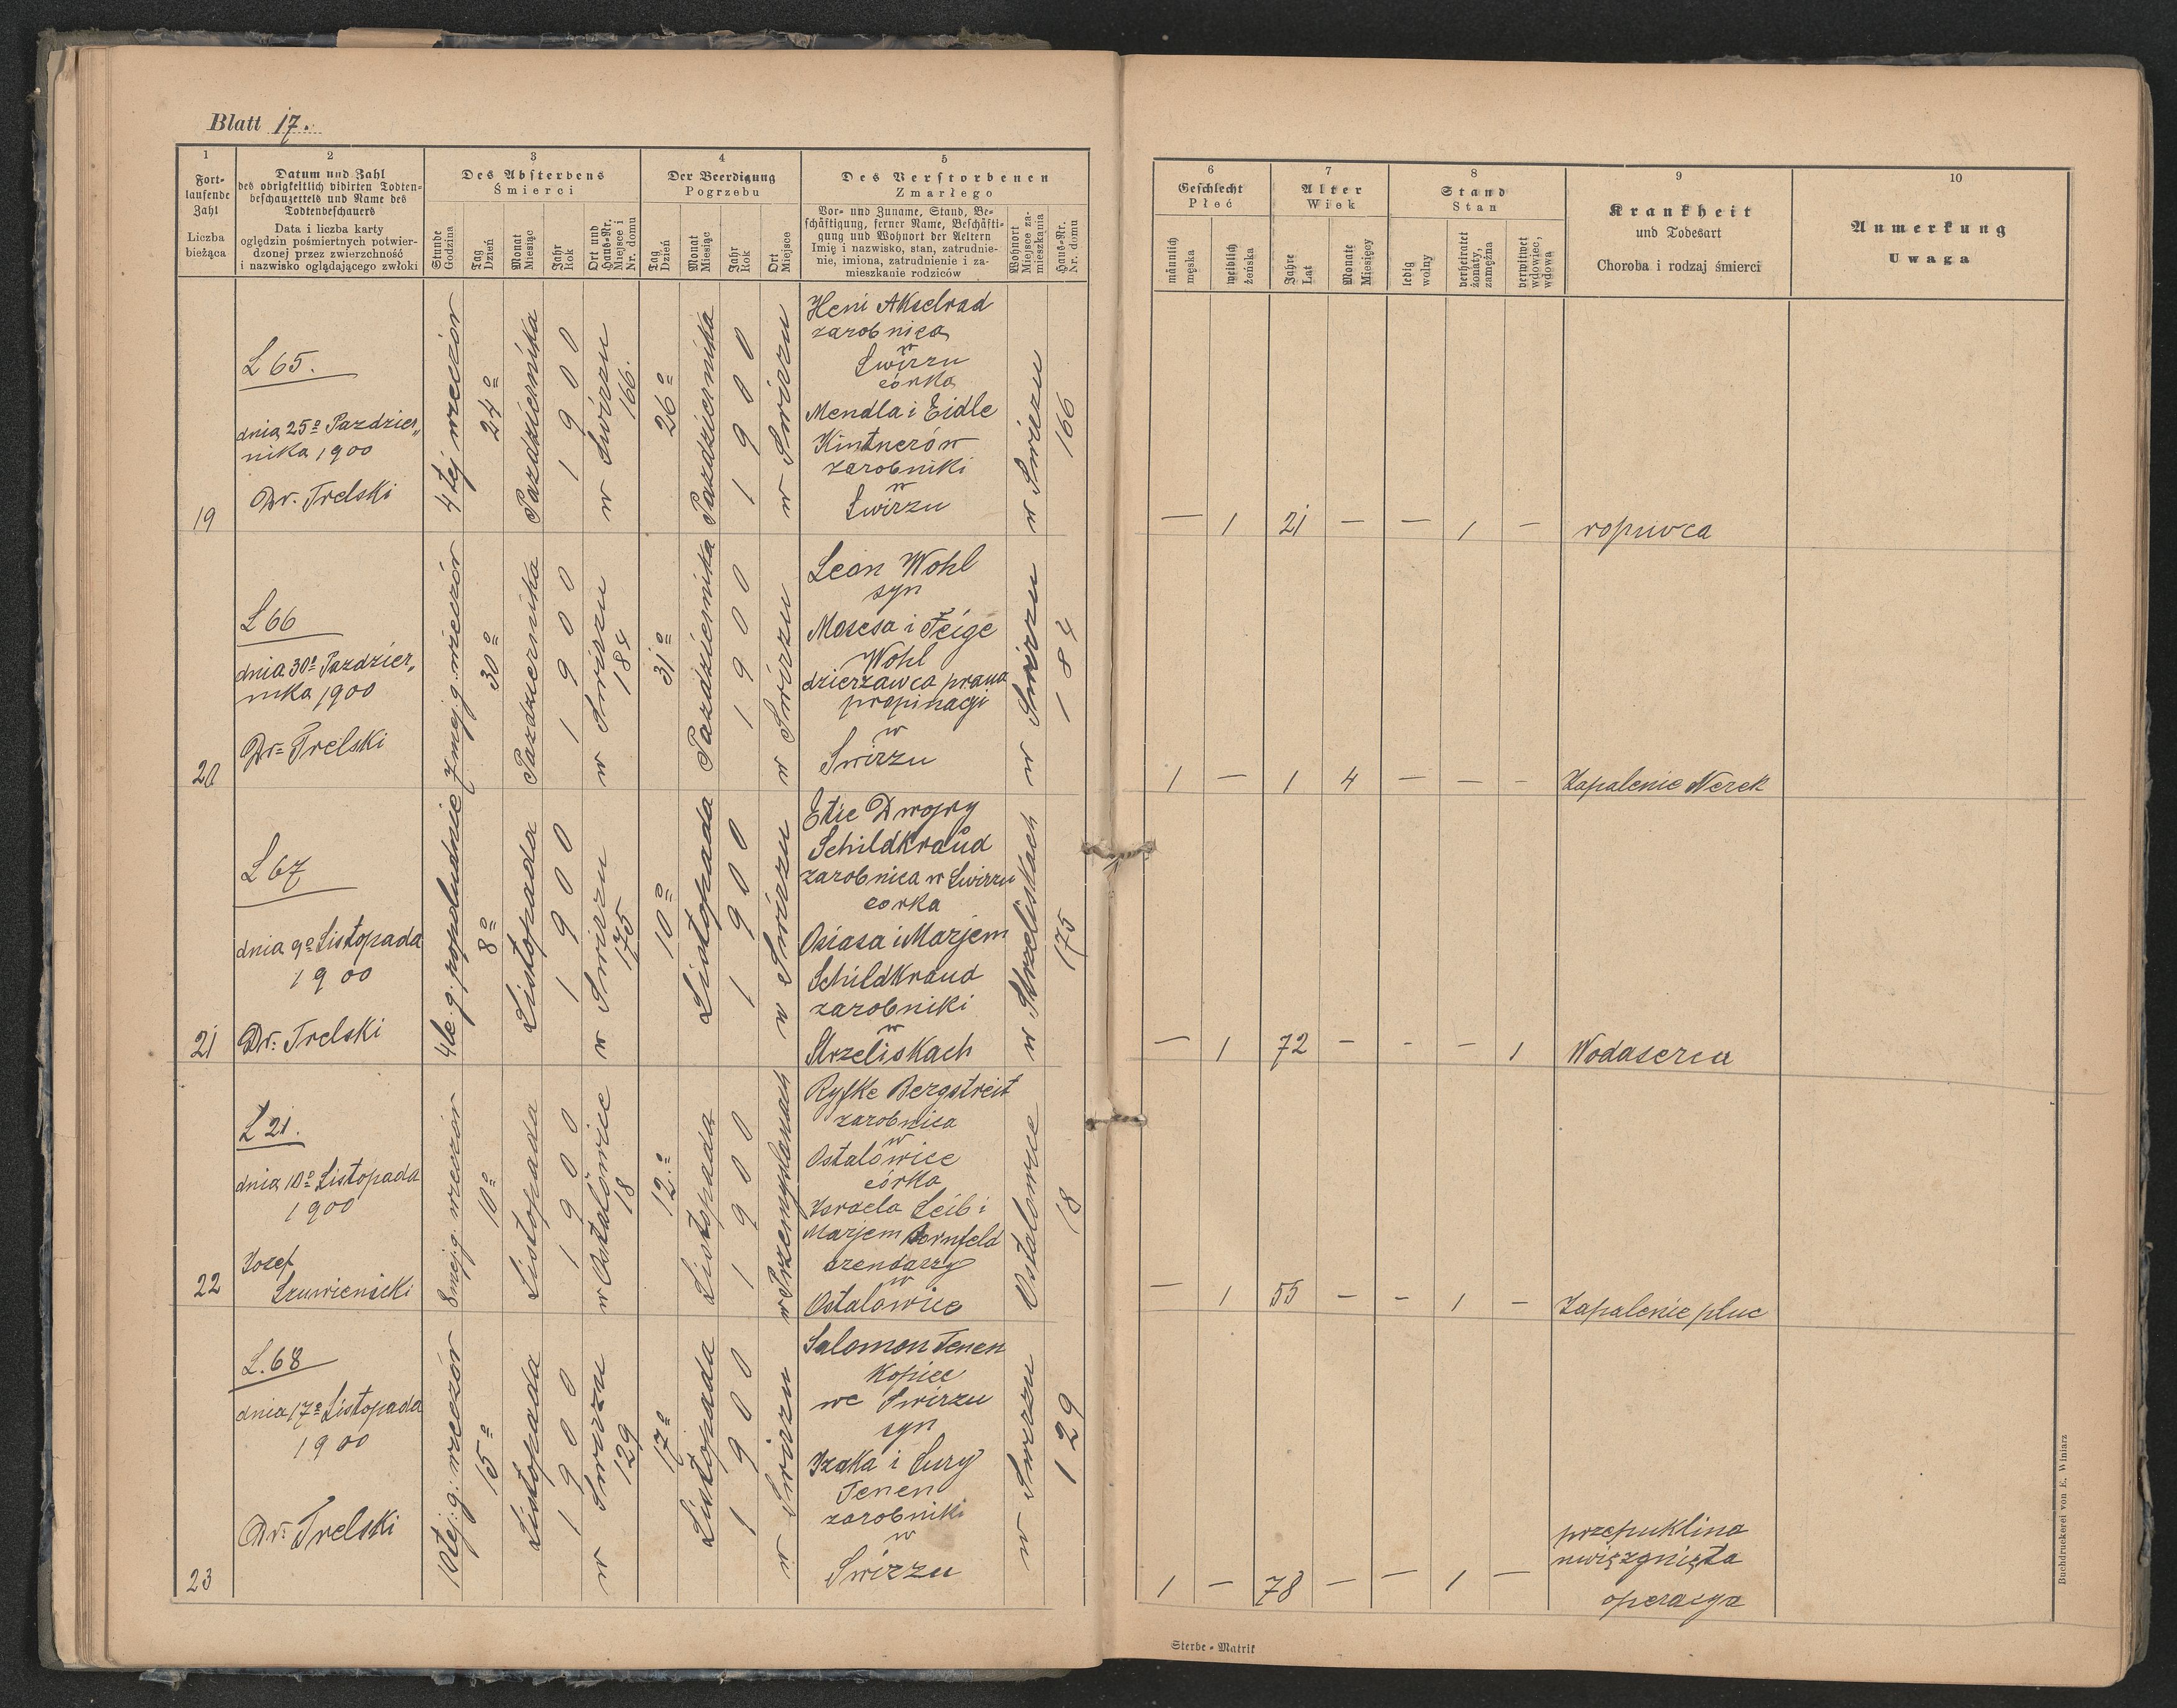 Blatt 17.
1
Fort-
laufende
Zahl
Liczba
bieżąca
2
Datum und Zahl
des obrigkeitlich vidirten Todten-
beschauzettels und Name des
Todtenbeschauers
Data i liczba karty
oględzin pośmiertnych potwier-
dzonej przez zwierzchność
i nazwisko oglądającego zwłoki
3
Des Absterbens
Śmierci
Stunde
Godzina
Tag
Dzień
Monat
Miesiąc
Jahr
Rok
Ort und
Haus-Nr.
Miejsce i
Nr. domu
4
Der Beerdigung
Pogrzebu
Tag
Dzień
Monat
Miesiąc
Jahr
Rok
Ort
Miejsce
5
Des Verstorbenen
Zmarłego
Vor- und Zuname, Stand, Be-
schäftigung, ferner Name, Beschäfti-
gung und Wohnort der Aeltern
Imię i nazwisko, stan, zatrudnie-
nie, imiona, zatrudnienie i za-
mieszkanie rodziców
Wohnort
Miejsce za-
mieszkania
Haus-Nr.
Nr. domu
6
Geschlecht
Płeć
männlich
męska
weiblich
żeńska
7
Alter
Wiek
Jahre
Lat
Monate
Miesięcy
8
Stand
Stan
ledig
wolny
verheiratet
żonaty,
zamężna
verwitwet
wdowiec,
wdowa
9
Krankheit
und Todesart
Choroba i rodzaj śmierci
10
Anmerkung
Uwaga
19
L 65.
dnia 25º Pazdzier„
nika 1900
Dr. Trelski
4tej wieczór
24º
Pazdziernika
1900
w Swirzu
166.
26º
Pazdziernika
1900
w Swirzu
Heni Akselrad
zarobnica
w
Swirzu
córka
Mendla i Eidle
Kintnerów
zarobniki
w
Swirzu
w Swirzu
166
— 1 21 — — 1 — ropnica
20
L 66
dnia 30º Pazdzier„
nika 1900
Dr= Trelski
7mej g. wieczór
30º
Pazdziernika
1900
w Swirzu
184
31º
Pazdziernika
1900
w Swirzu
Leon Wohl
syn
Mosesa i Feige
Wohl
dzierzawca prawa
propinacji
w
Swirzu
w Swirzu
184
1 — 1 4 — — — Zapalenie Nerek
21
L 67
dnia 9º Listopada
1900
Dr: Trelski
4te. g. popoludnie
8º
Listopada
1900
w Swirzu
175
10º
Listopada
1900
w Swirzu
Etie Dwojry
Schildkraud
zarobnica w Swirzu
corka
Osiasa i Marjem
Schildkraud
zarobniki
w
Strzeliskach
w Strzeliskach
175
— 1 72 — - — 1 Wodaserca
22
L 21.
dnia 10º Listopada
1900
Jozef
8mej g. wieczór
10º
Listopada
1900
w Ostalowice
18
12.º
Listopada
1900
w Przemyslanach
Ryfke Bergstreit
zarobnica
w
Ostalowice
córka
Israela Leib i
Marjem Dornfeld
arendarzy
w
Ostalowice
Ostalowice
18
— 1 55 — — 1 — Zapalenie pluc
23
L. 68
dnia 17º Listopada
1900
Dr: Trelski
10tej g: wieczór
15º
Listopada
1900
w Swirzu
129
17º
Listopada
1900
w Swirzu
Salomon Tenen
Kopiec
we Swirzu
syn
Izaka i Sury
Tenen
zarobniki
w
Swirzu
w Swirzu
129
1 — 78 — — 1 — przepuklina
uwięzgnięta
operacya
Sterbe-Matrik
Buchdruckerei von E. Winiarz